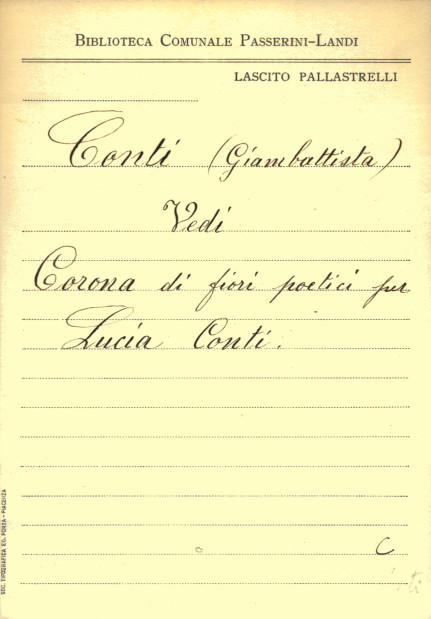 BIBLIOTECA COMUNALE PASSERINI-LANDI
LASCITO PALLASTRELLI
Conti (Giambattista)
Vedi
Corona di fiori poetici per
Lucia Conti.
C
SOC. TIPOGRAFICA ED. PORTA - PIACENZA